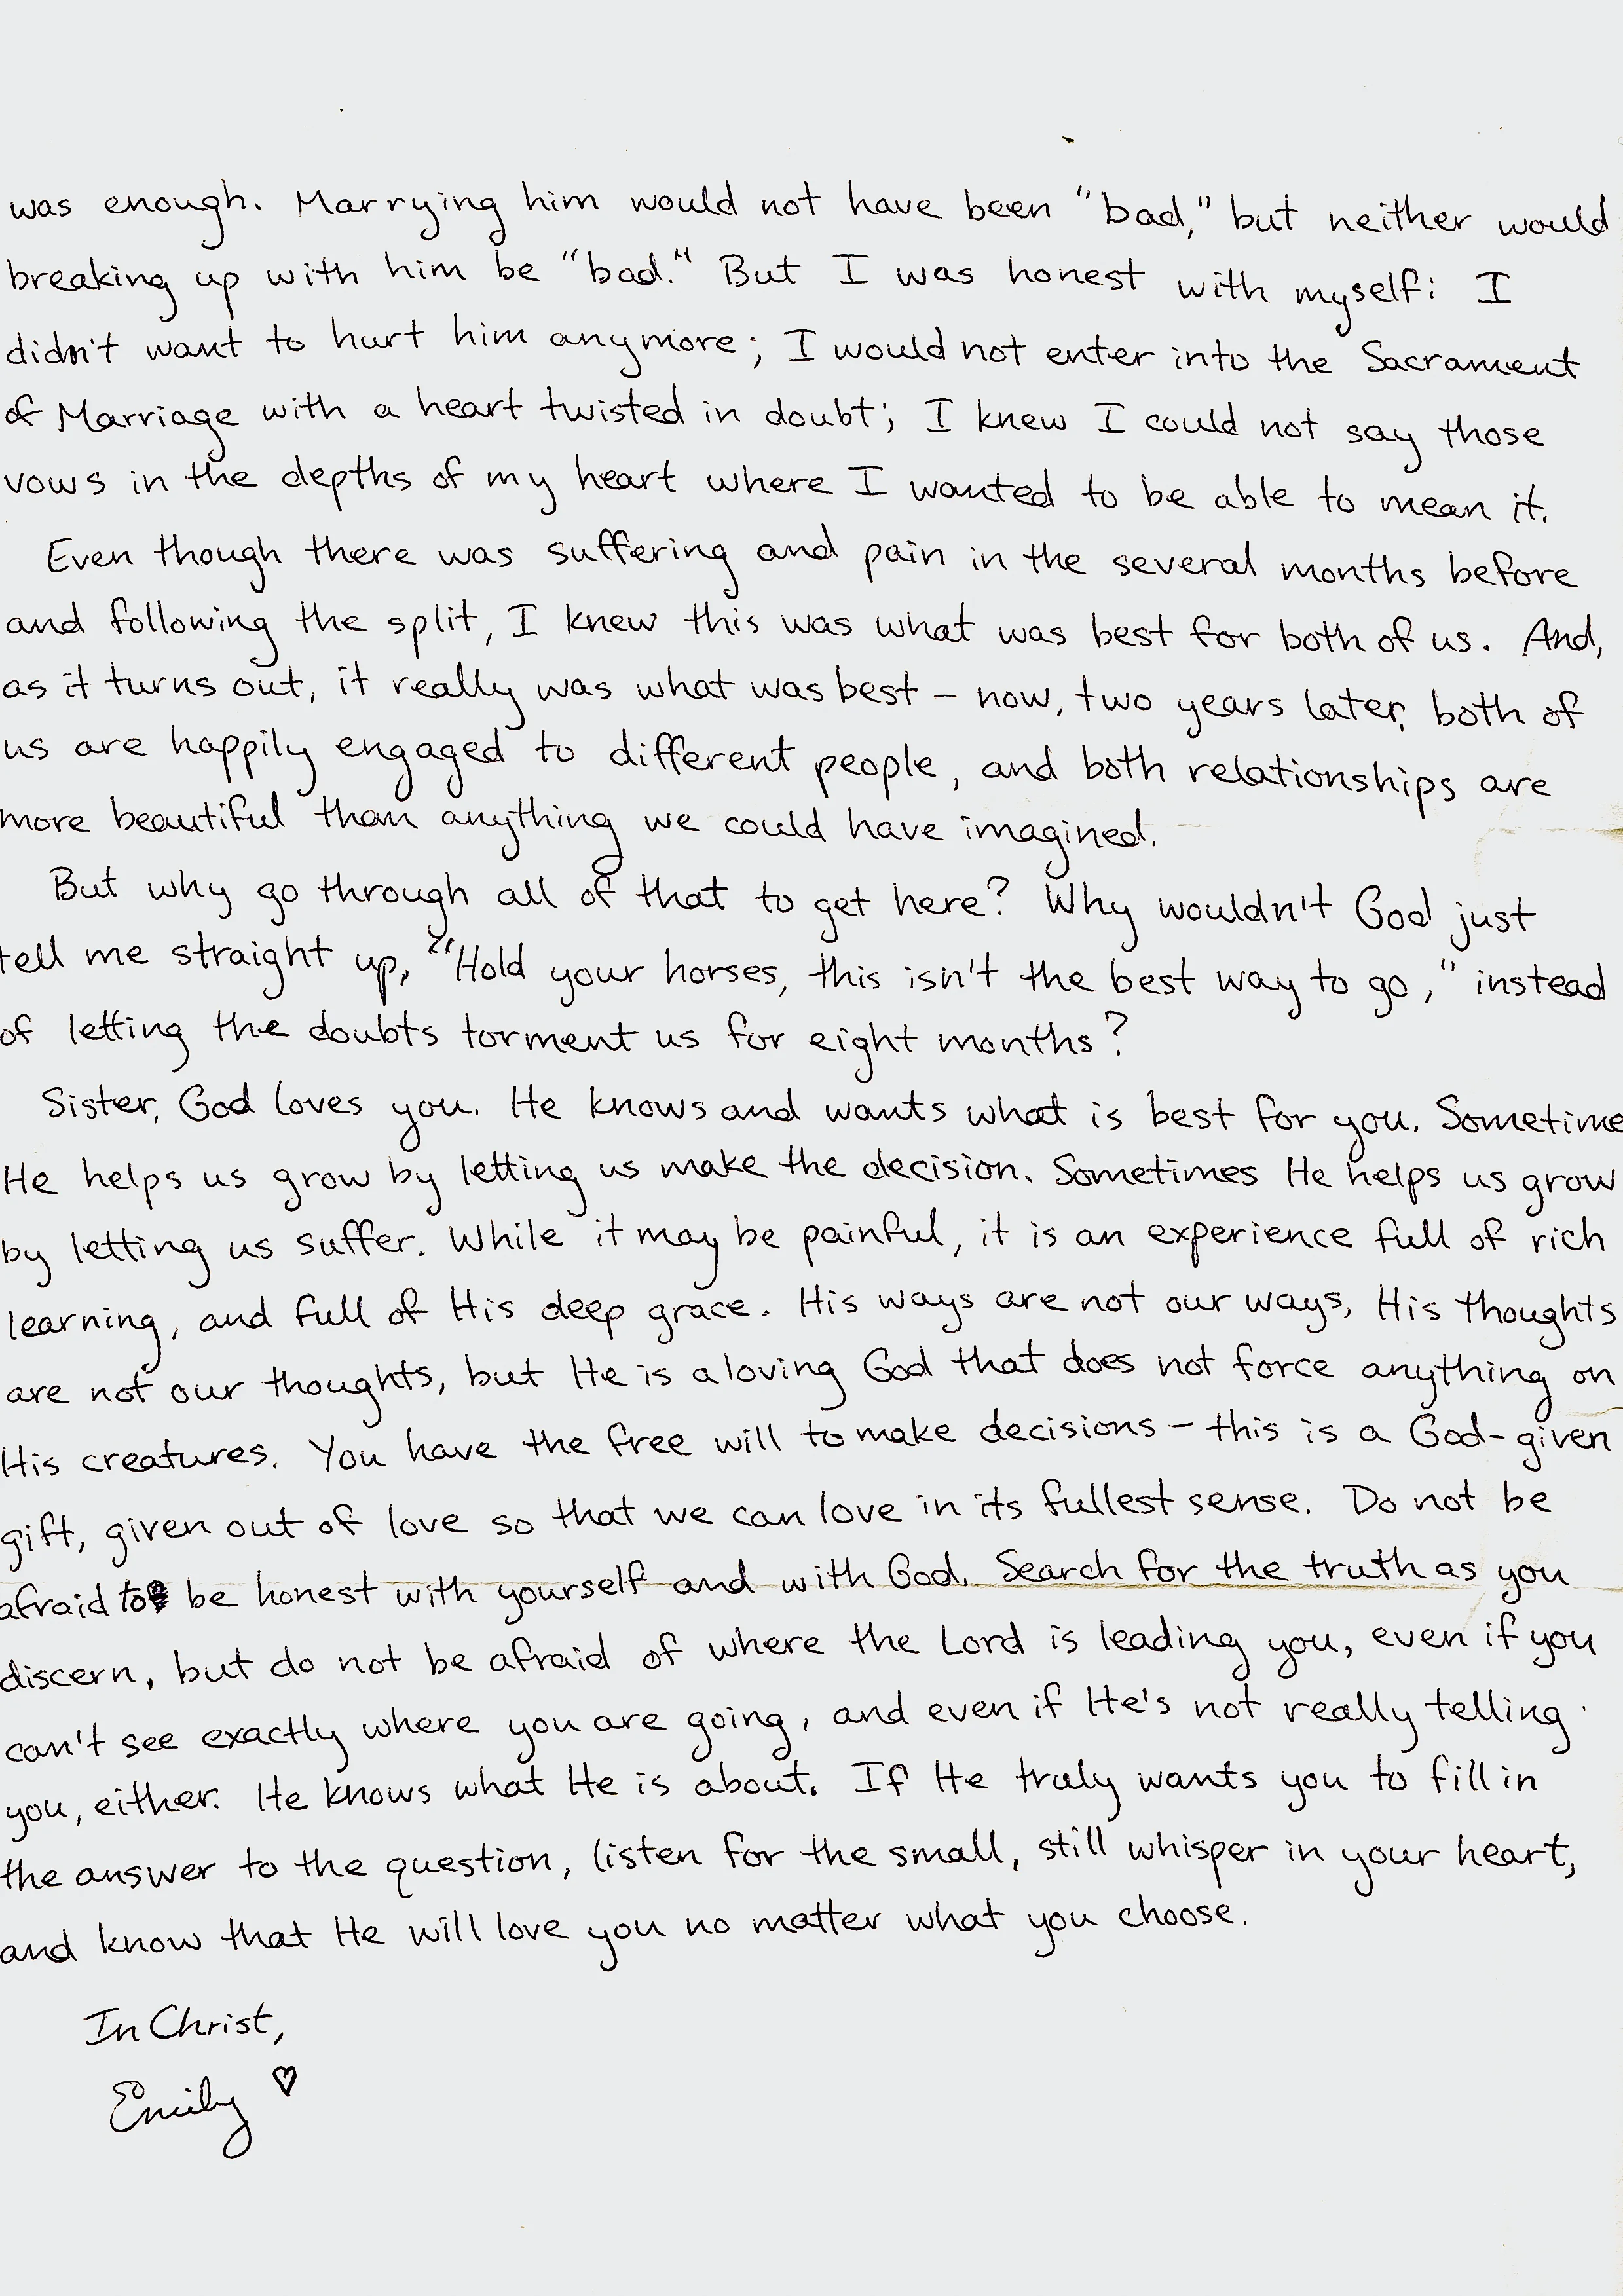 was enough. Marrying him would not have been "bad," but neither would
breaking up with him be "bad." But I was honest with myself: I
didn't want to hurt him anymore; I would not enter into the Sacrament
of Marriage with a heart twisted in doubt; I knew I could not say those
vows in the depths of my heart where I wanted to be able to mean it.
Even though there was suffering and pain in the several months before
and following the split, I knew this was what was best for both of us. And,
as it turns out, it really was what was best - now, two years later, both of
us are happily engaged to different people, and both relationships are
more beautiful than anything we could have imagined.
But why go through all of that to get here? Why wouldn't God just
tell me straight up, "Hold your horses, this isn't the best way to go," instead
of letting the doubts torment us for eight months?
Sister, God loves you. He knows and wants what is best for you. Sometime
He helps us grow by letting us make the decision. Sometimes He helps us grow
by letting us suffer. While it may be painful, it is an experience full of rich
learning, and full of His deep grace. His ways are not our ways, His thoughts
are not our thoughts, but He is a loving God that does not force anything on
His creatures. You have the free will to make decisions - this is a God-given
gift, given out of love so that we can love in its fullest sense. Do not be
afraid to be honest with yourself and with God. Search for the truth as you
discern, but do not be afraid of where the Lord is leading you, even if you
can't see exactly where you are going, and even if He's not really telling
you, either. He knows what He is about. If He truly wants you to fill in
the answer to the question, listen for the small, still whisper in your heart,
and know that He will love you no matter what you choose.
In Christ,
Emily ♡